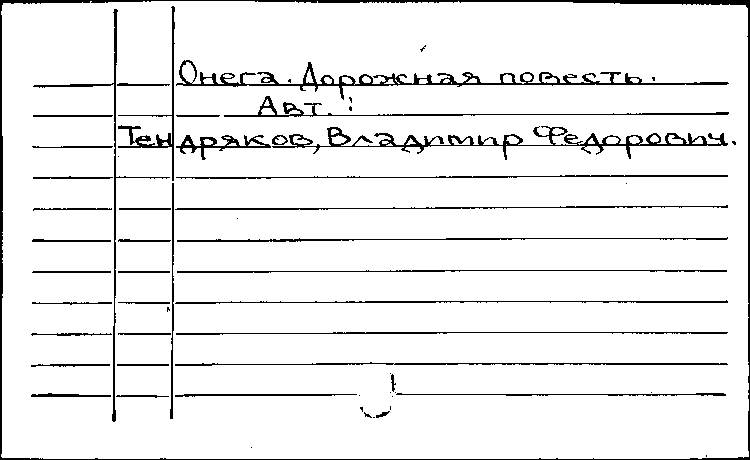 Онега. Дорожная повесть.
Авт.:
Тендряков, Владимир Федорович.